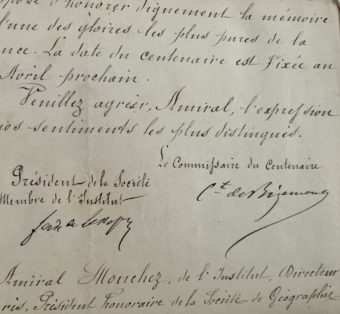 pose d'honorer dignement la mémoire
l'une des gloires les plus pures de la
nce. La date du centenaire est fixée au
Avril prochain.
Veuillez agréer, Amiral, l'expression
nos sentiments les plus distingués.
Le Commissaire du Centenaire
Président de la Société
Membre de l'Institut
Cte de Bizemont
Amiral Mouchez, de l'Institut, Directeur
ris, Président honoraire de la Société de Géographie